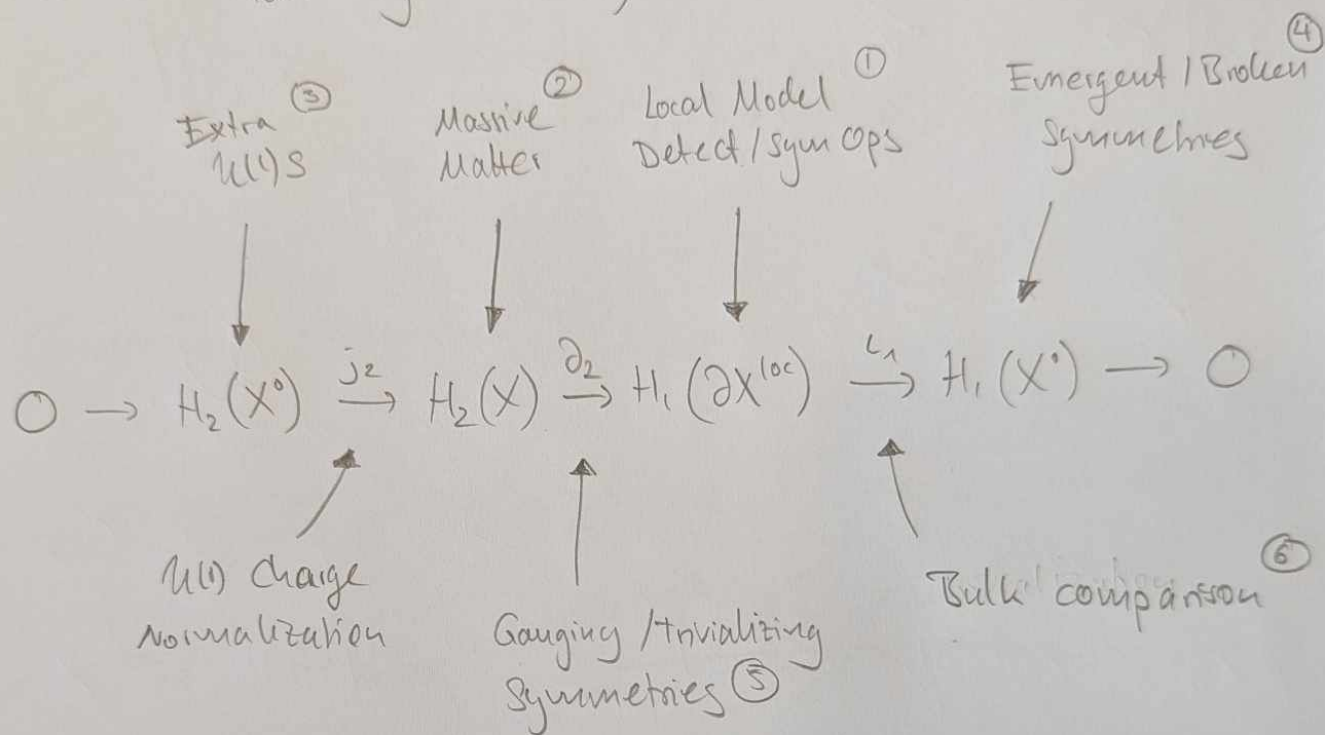 ③
Extra
U(1)s
②
Massive
Matter
①
Local Model
Detect/Sym Ops
④
Emergent / Broken
Symmetries
O → H₂(X°) j₂→ H₂(X) ∂₂→ H₁(∂X^loc) ι₁→ H₁(X°) → O
U(1) Charge
Normalization
Gauging / trivializing
Symmetries ⑤
Bulk comparison ⑥